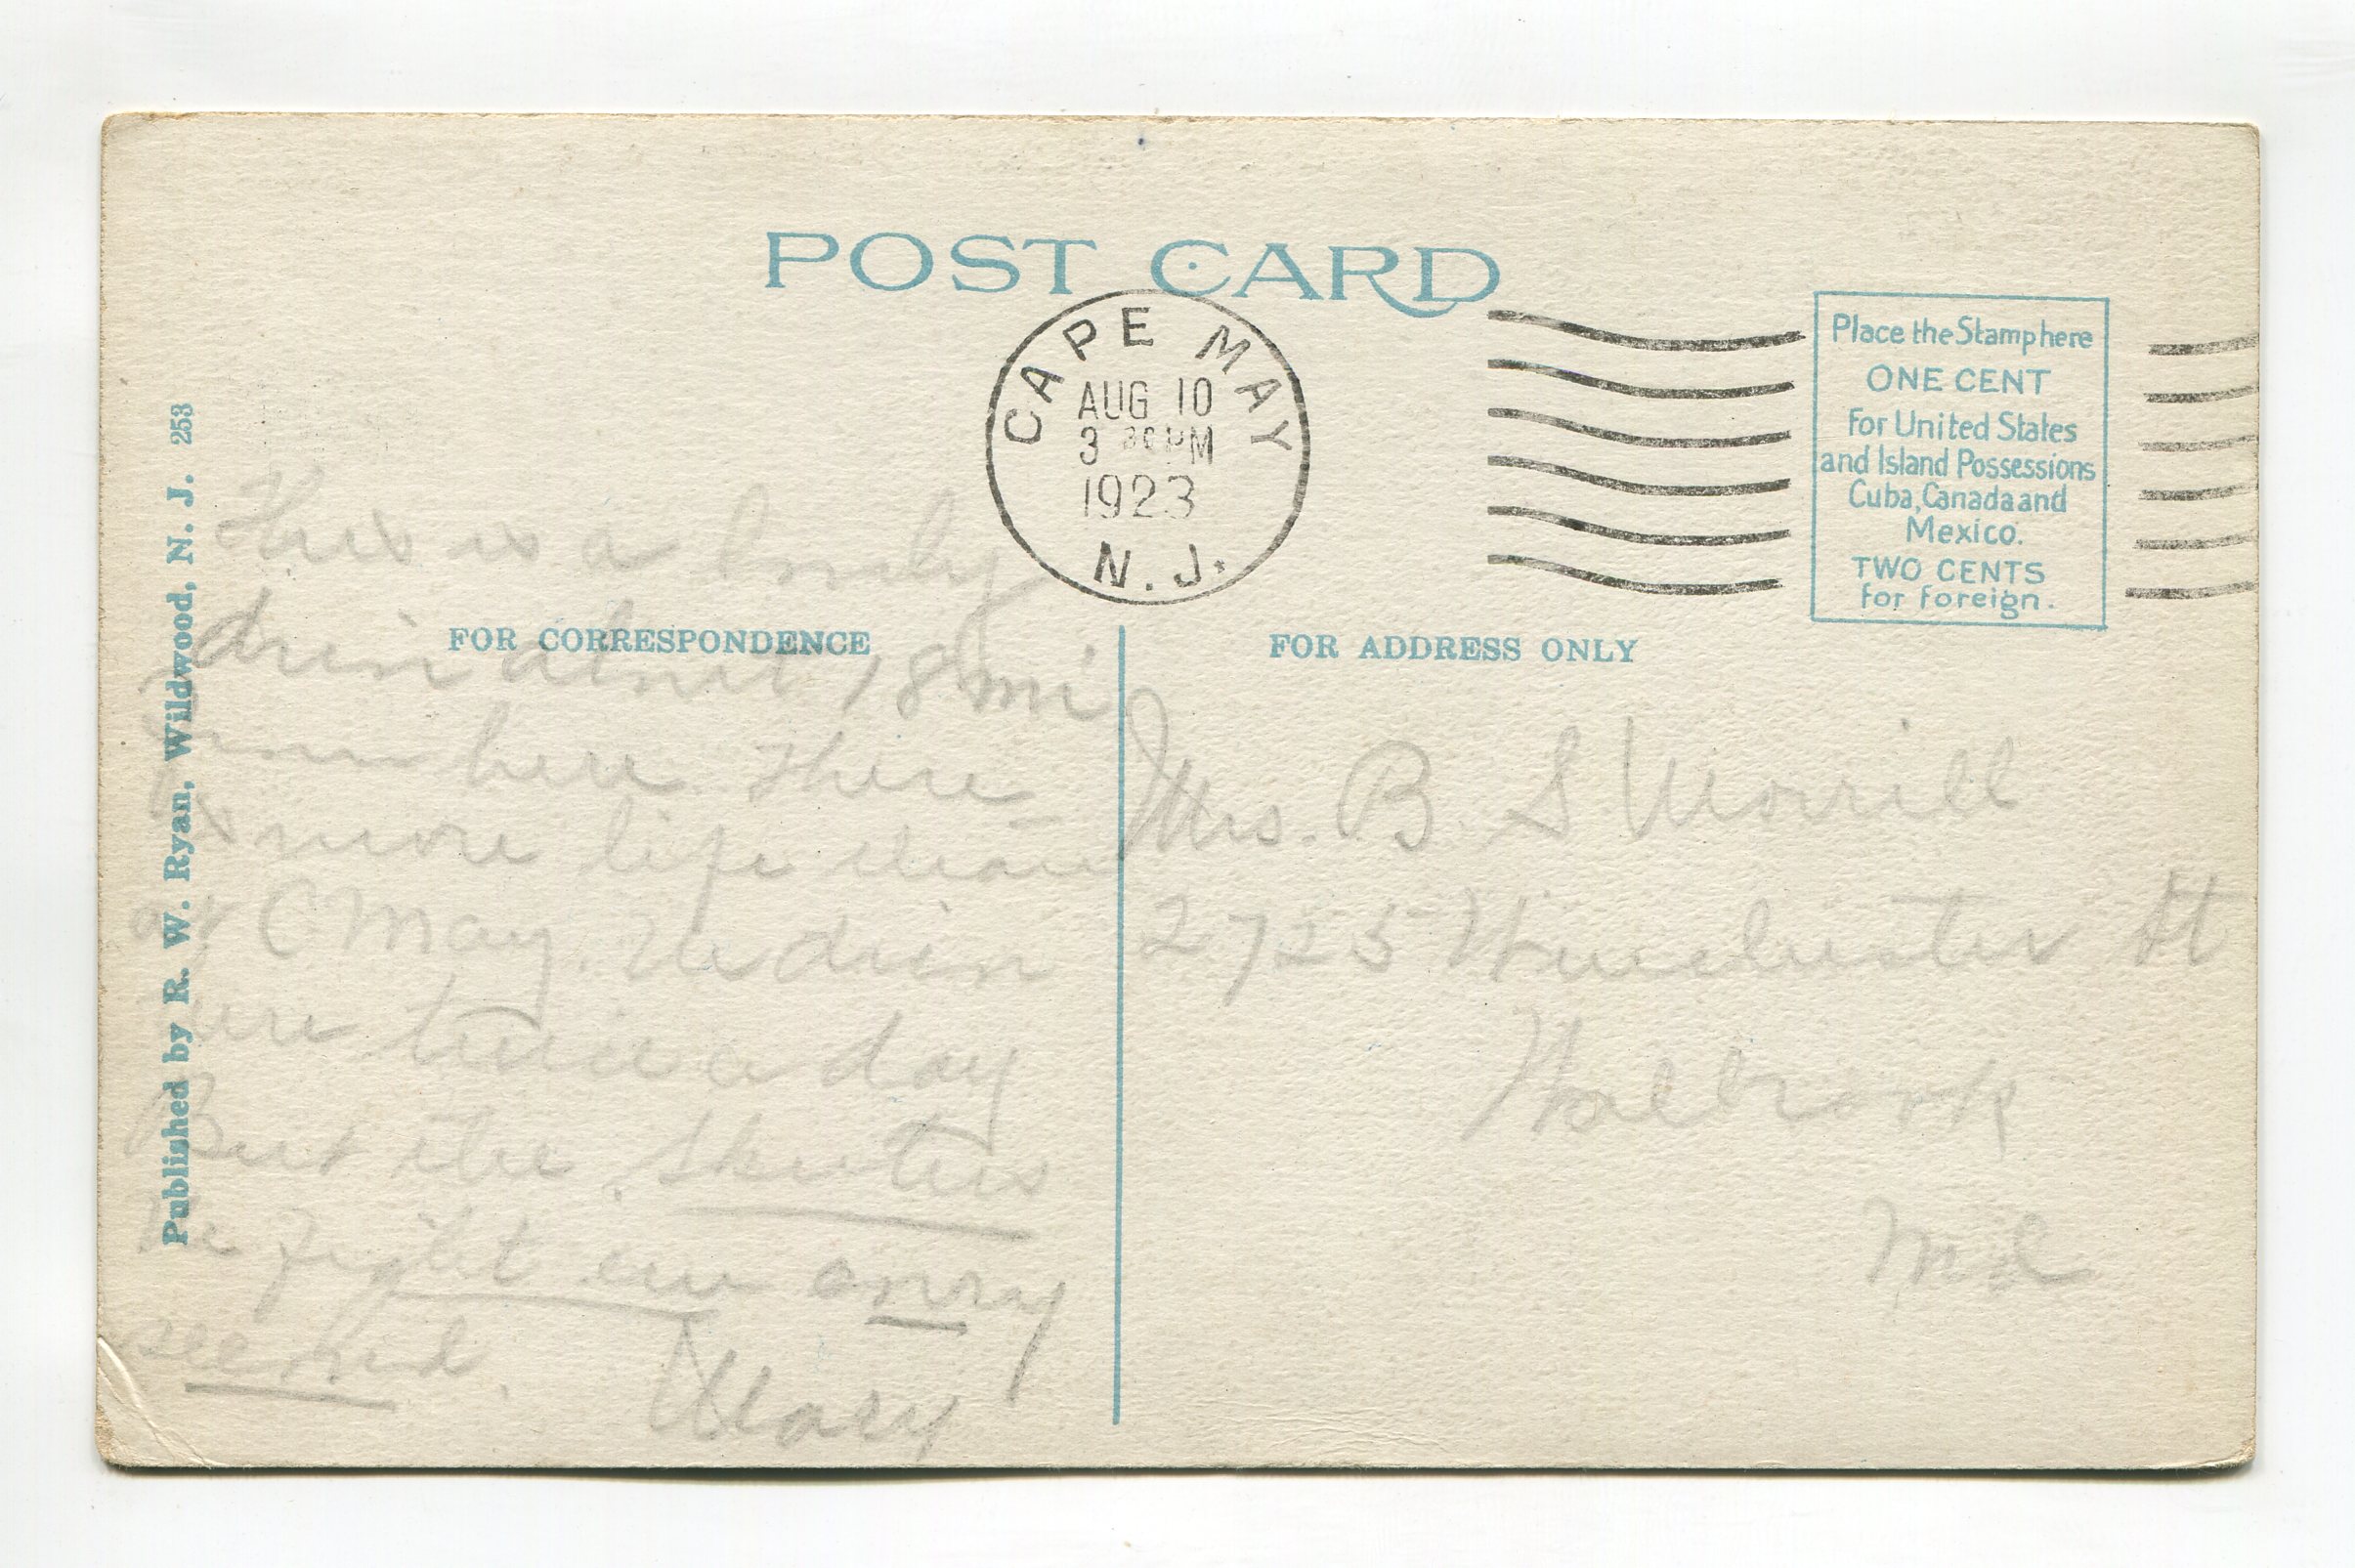 POST CARD
CAPE MAY
AUG 10
3 30 PM
1923
N. J.
Place the Stamp here
ONE CENT
for United States
and Island Possessions
Cuba, Canada and
Mexico.
TWO CENTS
for foreign.
Published by R. W. Ryan, Wildwood, N. J. 253
FOR CORRESPONDENCE
This is a lovely
drive about 18 mi
from here. There
is more life than
at C May. We
twice a day
But the skeeters
We fight em every
second.
Mary
FOR ADDRESS ONLY
Mrs. B. S Morrill
2725 Winchester St
Walbrook
Md